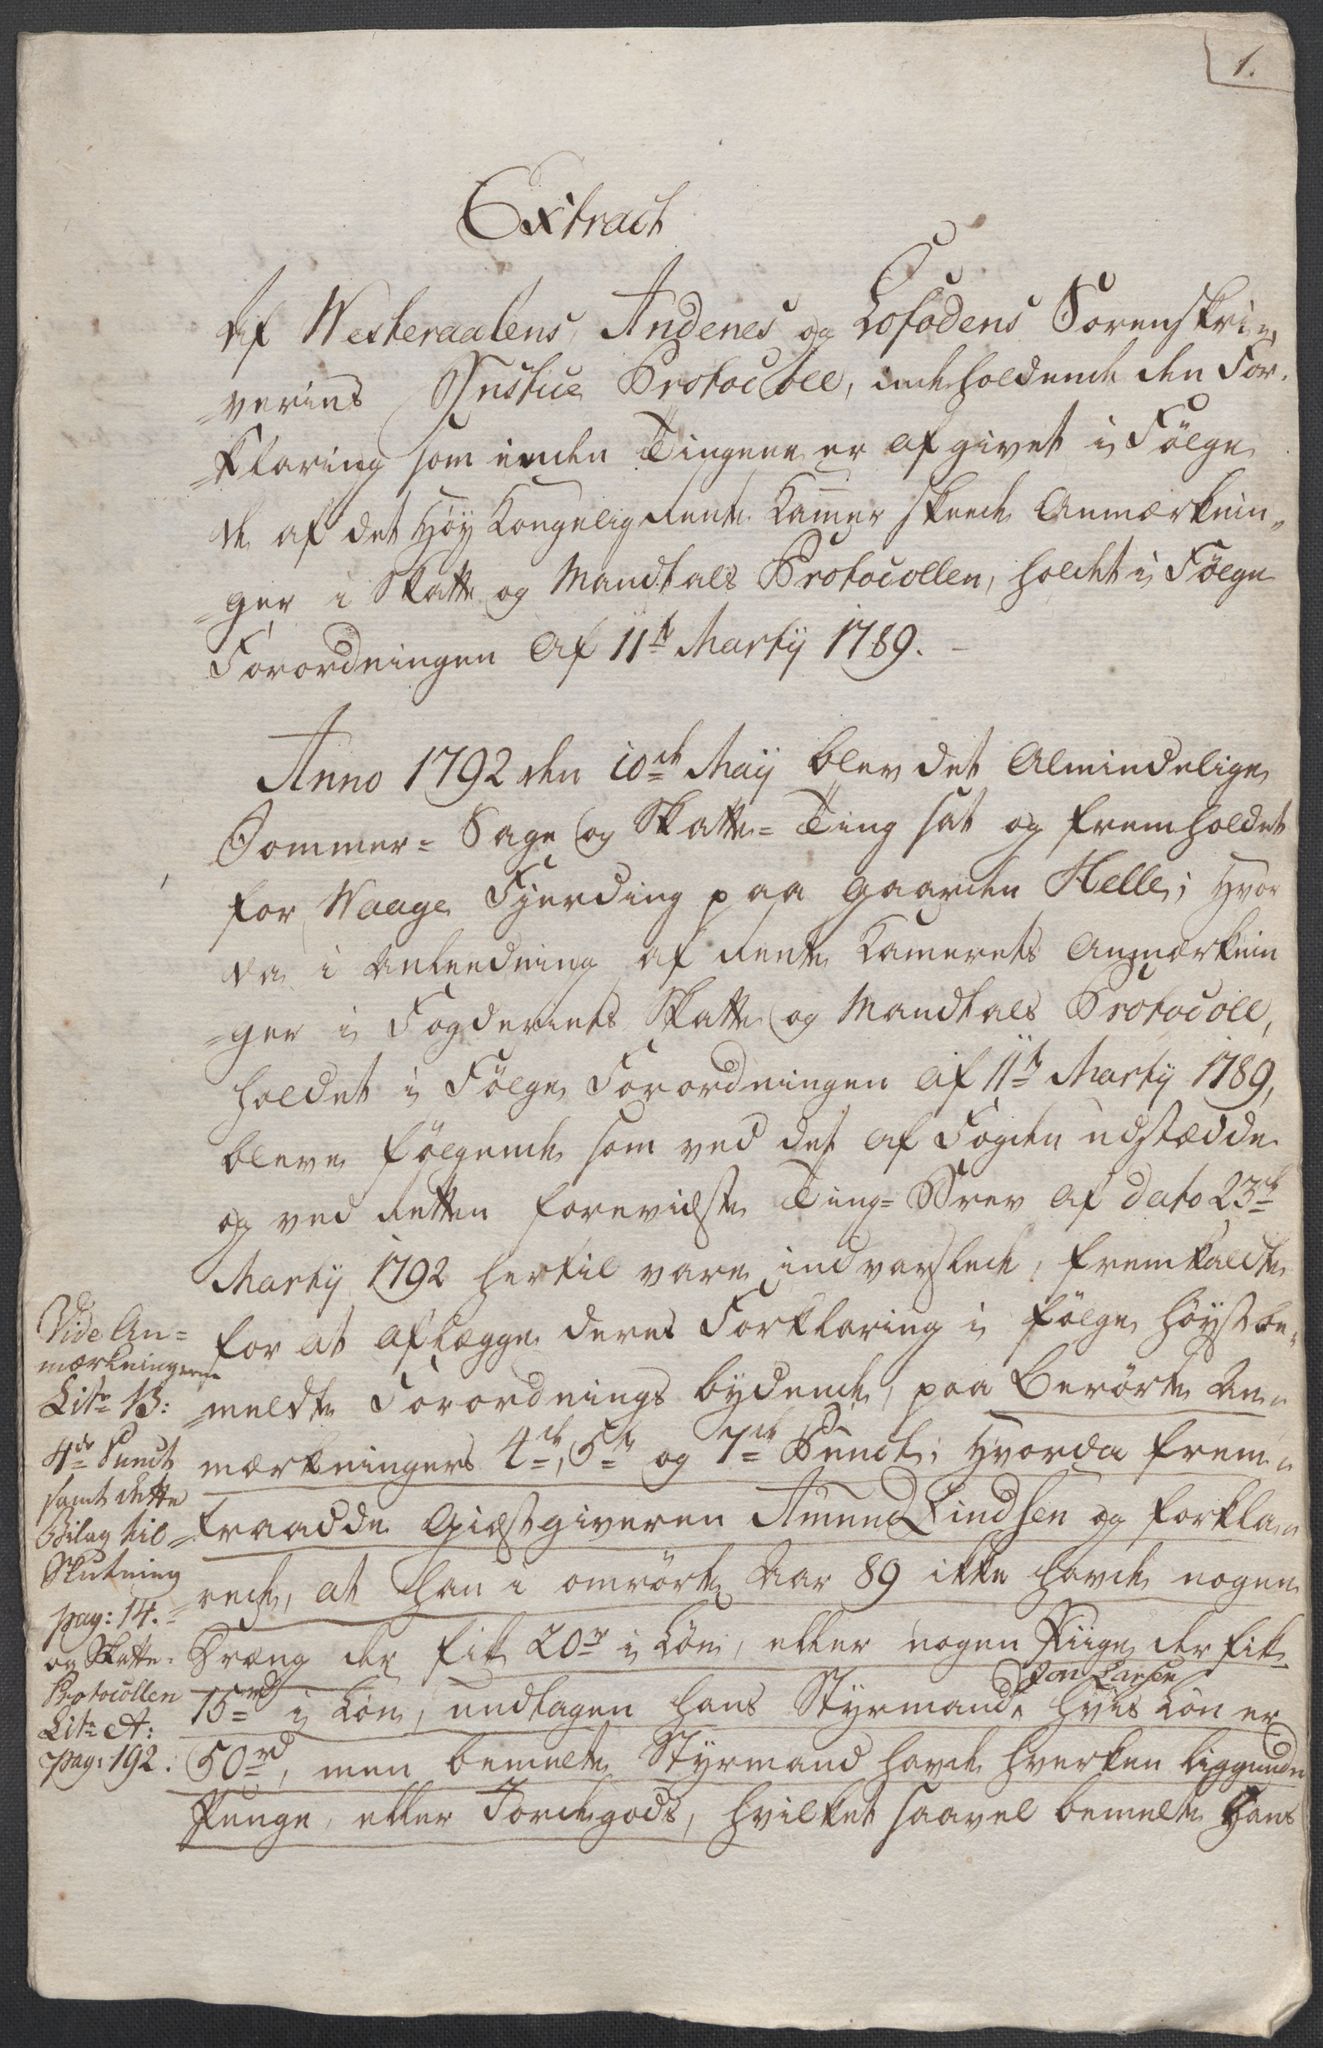 1.
Extract
Af Westeraalens, Andenes og Lofodens Sorenskri=
=veries Justice Protocoll, indeholdende den For=
=klaring som inden Tingene er afgivet i Følge
de af det Høy Kongelig Rente Kammer skeede Anmærknin=
=ger i Skatte og Mandtals Protocollen, holdet i Følge
Forordningen Af 11te Martÿ 1789.
Anno 1792 den 10de Maÿ blev det Almindelige
Sommer= Sage og Skatte= Ting sat og fremholdet
for Waage Fjerding paa Gaarden Helle; Hvor
da i Anleedning af Rente Kamerets Anmærknin
=ger i Fogderiets Skatte og Mandtals Protocoll,
holdet i Følge Forordningen af 11te Martÿ 1789,
bleve følgende som ved det af Fogden udstædde
og ved Retten foreviiste Ting= Brev af dato 23de
Martÿ 1792 hertil vare indvarslede, fremkaldte
for at aflægge deres Forklaring i følge høystbe=
=meldte Forordnings bydende, paa berørte An=
mærkningers 4de, 5te og 7de Punct; Hvorda frem=
=traadde Giæstgiveren Amund Lindsen og forkla=
rede, at han i omrørte Aar 89 ikke havde nogen
Dræng der fik 20rd i Løn, eller nogen Piige der fik
15rd i Løn, undtagen hans Styrmand Jon Larsen hvis Løn er
50rd, men bemelte Styrmand havde hverken liggende
Penge, eller Jordegods, hvilket saavel bemelte hans
Vide An=
mærkningerne
Litr B:
4de Punct
samt dette
Bilag til
Slutning
pag: 14.
og Skatte=
Protocollen
Litr A:
pag: 192.